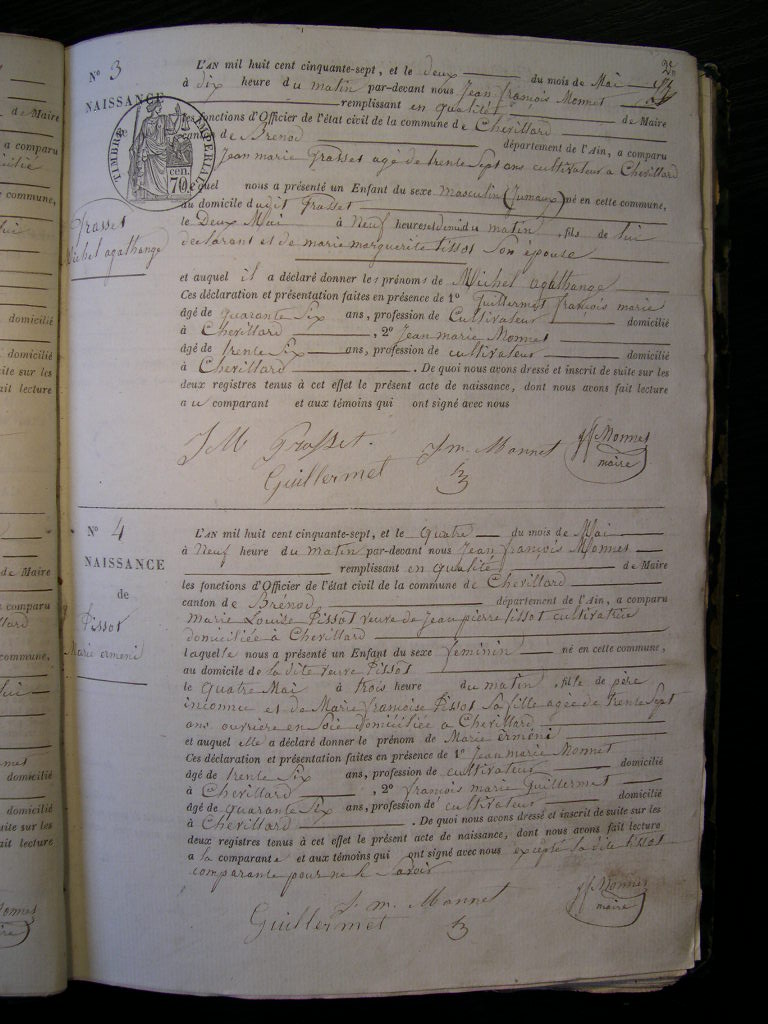 2
N° 3
NAISSANCE
TIMBRE IMPÉRIAL
70 cen.
Grasset
Michel agathange
L'AN mil huit cent cinquante-sept, et le deux du mois de Mai
à dix heure du matin par-devant nous Jean françois Monnet
remplissant en qualité de Maire
les fonctions d'Officier de l'état civil de la commune de Chevillard
canton de Brénod département de l'Ain, a comparu
Jean marie Grasset agé de trente Sept ans cultivateur a Chevillard
lequel nous a présenté un Enfant du sexe masculin (Jumaux) né en cette commune,
au domicile dudit Grasset
le Deux Mai à Neuf heures et demi du matin, fils de lui
declarant et de marie marguerite tissot Son épouse
et auquel il a déclaré donner les prénoms de Michel agathange
Ces déclaration et présentation faites en présence de 1° Guillermet françois marie
âgé de quarante Six ans, profession de Cultivateur domicilié
à Chevillard , 2° Jean marie Monnet
âgé de trente Six ans, profession de cultivateur domicilié
à Chevillard . De quoi nous avons dressé et inscrit de suite sur les
deux registres tenus à cet effet le présent acte de naissance, dont nous avons fait lecture
au comparant et aux témoins qui ont signé avec nous
J M Grasset. J m. Monnet
Guillermet
Monnet
maire
N° 4
NAISSANCE
de
Tissot
Marie ermeni
L'AN mil huit cent cinquante-sept, et le quatre du mois de Mai
à Neuf heure du matin par-devant nous Jean françois Monnet
remplissant en qualité de Maire
les fonctions d'Officier de l'état civil de la commune de Chevillard
canton de Brénod département de l'Ain, a comparu
marie Louise Tissot veuve de Jean pierre tissot cultivatrice
domiciliée à Chevillard
laquelle nous a présenté un Enfant du sexe feminin né en cette commune,
au domicile de la dite veuve Tissot
le quatre Mai à trois heure du matin, fille de père
inconnu et de Marie françoise Tissot sa fille agée de trente Sept
ans ouvrière en Soie domiciliée a Chevillard
et auquel elle a déclaré donner le prénom de Marie ermeni
Ces déclaration et présentation faites en présence de 1° Jean marie Monnet
âgé de trente Six ans, profession de cultivateur domicilié
à Chevillard , 2° françois marie Guillermet
âgé de quarante Six ans, profession de cultivateur domicilié
à Chevillard . De quoi nous avons dressé et inscrit de suite sur les
deux registres tenus à cet effet le présent acte de naissance, dont nous avons fait lecture
a la comparante et aux témoins qui ont signé avec nous excepté la dite tissot
comparante pour ne le Savoir
J. m. Monnet
Guillermet
Monnet
maire